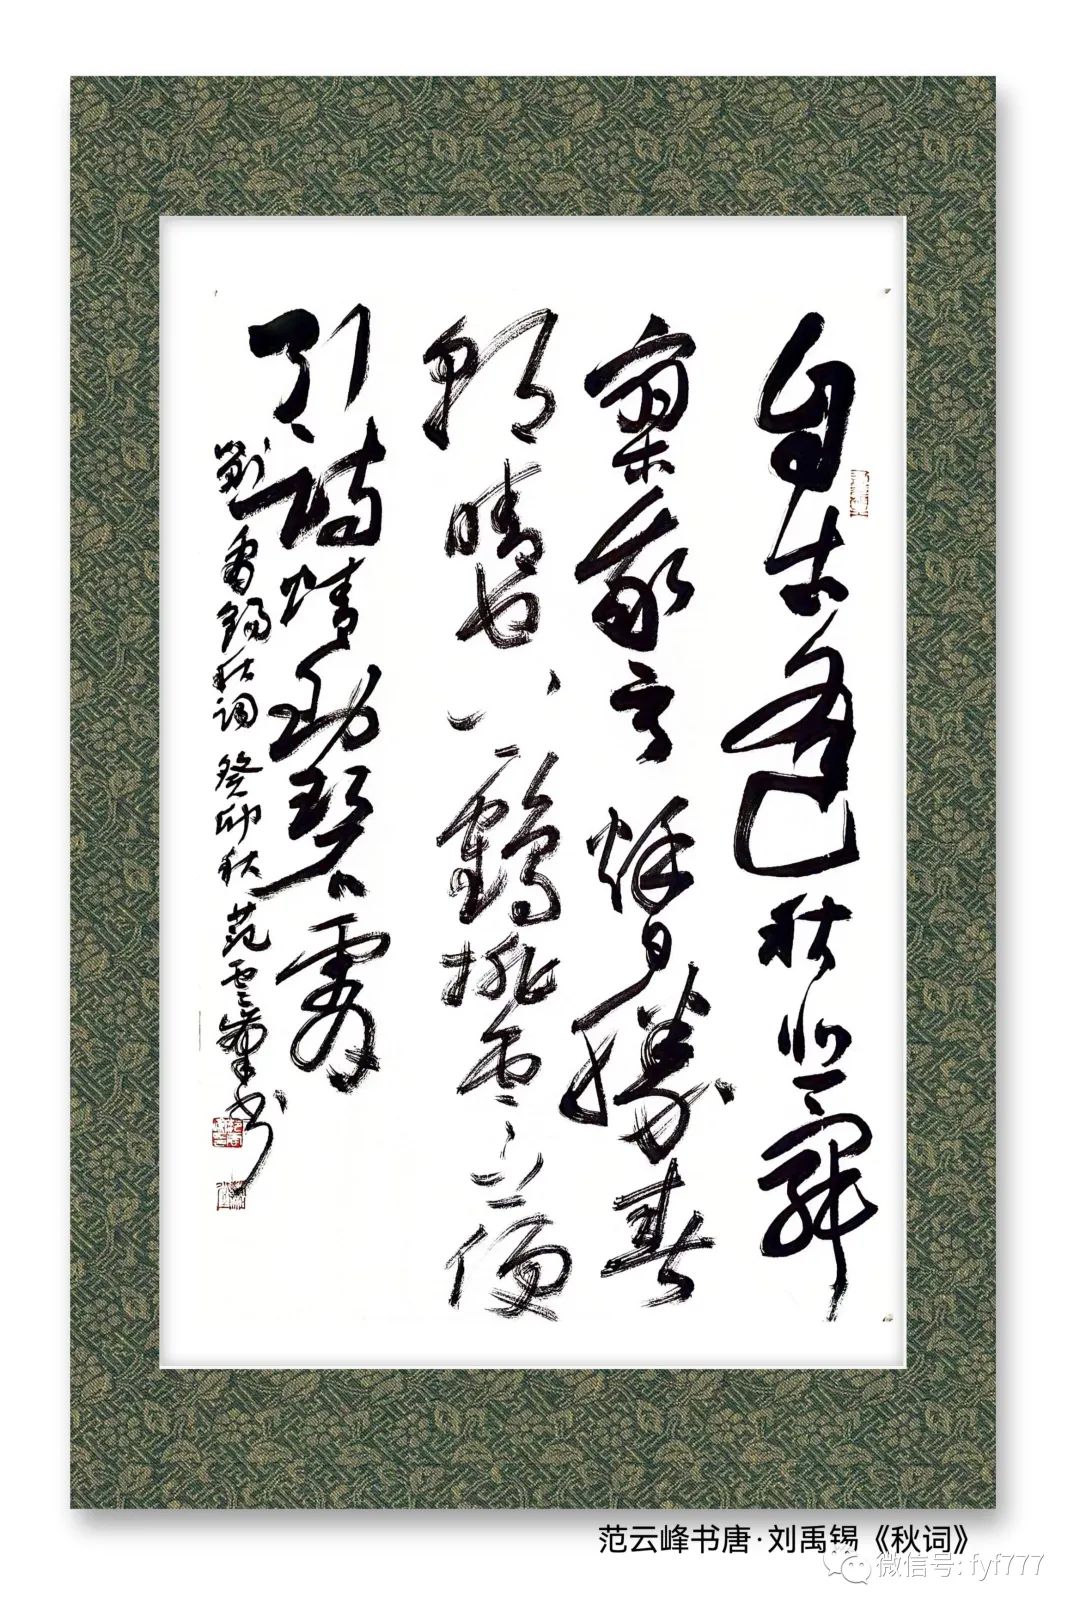 自古逢秋悲寂
寥我言秋日勝春
朝晴空一鶴排雲上便
引詩情到碧霄
劉禹錫秋詞 癸卯秋 范雲峯书
范云峰书唐·刘禹锡《秋词》
微信号: fyf777